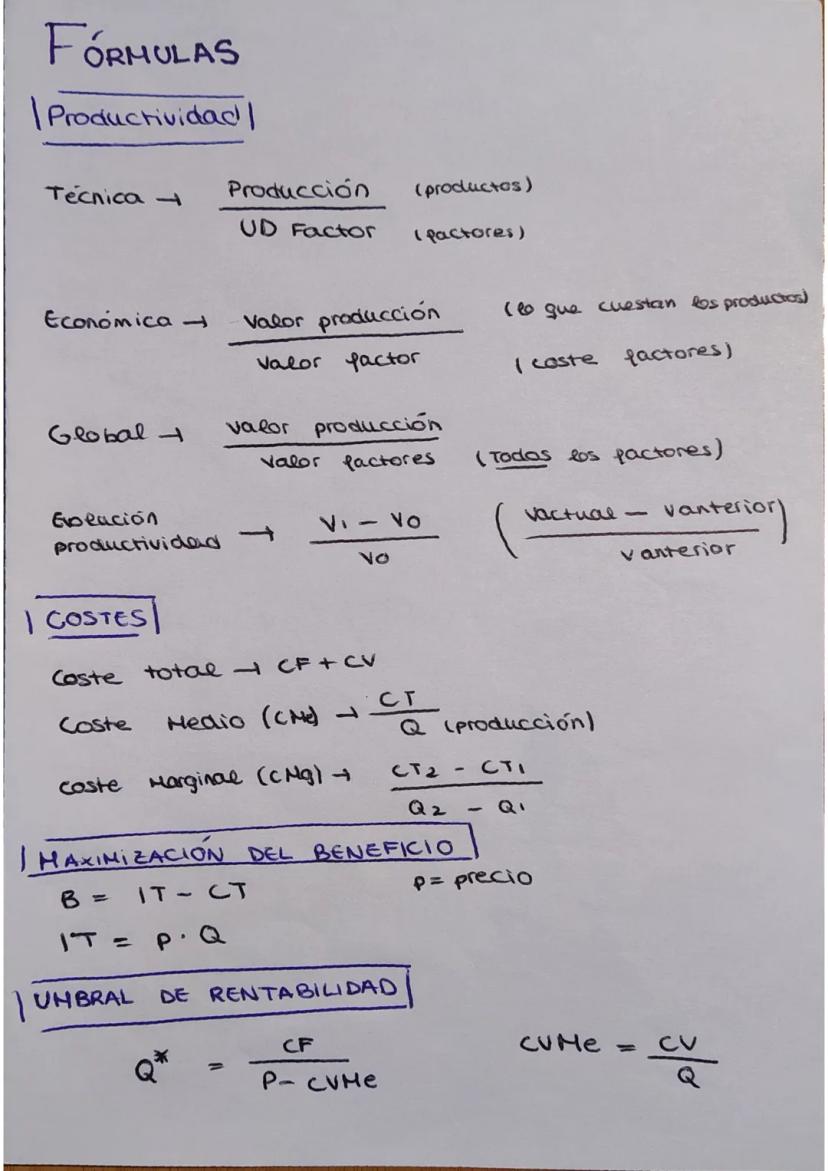 FÓRMULAS
Productividad
Técnica → Producción (productos)
UD Factor (factores)
Económica → Valor producción (lo que cuestan los productos)
Valor factor (coste factores)
Global → Valor producción
Valor factores (Todos los factores)
Evolución productividad → V1 - V0 / V0 (Vactual - Vanterior / Vanterior)
COSTES
Coste total → CF + CV
Coste Medio (CMe) → CT / Q (producción)
Coste Marginal (CMg) → CT2 - CT1
Q2 - Q1
MAXIMIZACIÓN DEL BENEFICIO
B = IT - CT p = precio
IT = p · Q
UMBRAL DE RENTABILIDAD
Q* = CF / P - CVMe CVMe = CV / Q